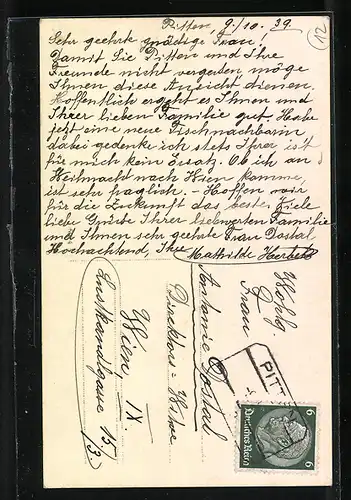 Pitten 9./10. 39.
Sehr geehrte gnädige Frau!
Damit Sie Pitten und Ihre
Freunde nicht vergessen möge
Ihnen diese Ansicht dienen.
Hoffentlich ergeht es Ihnen und
Ihrer lieben Familie gut. Habe
jetzt eine neue Tischnachbarin
dabei gedenke ich stets Ihrer ist
für mich kein Ersatz. Ob ich an
Weihnacht nach Wien komme,
ist sehr fraglich. - Hoffen wir
für die Zukunft das beste. Viele
liebe Grüsse Ihrer liebwerten Familie
und Ihnen sehr geehrte Frau Dostal
Hochachtend, Ihre
Mathilde Herbeck
Wohlg.
Frau
Antonie Dostal
Direktors-Witwe
Wien, IX.
Lustkandlgasse 15/
3)
PITT
6
6
Deutsches Reich